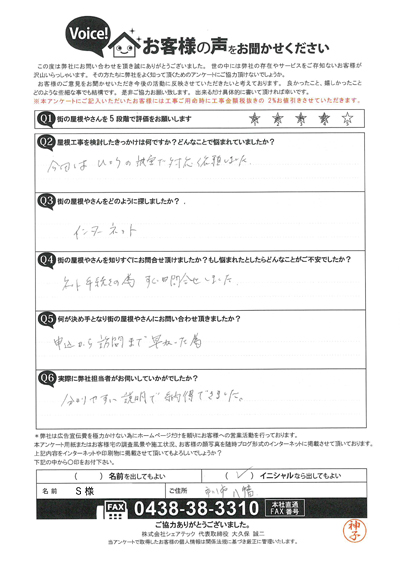 Voice!
お客様の声をお聞かせください
この度は弊社にお問い合わせを頂き誠にありがとうございます。世の中には弊社の存在やサービスをご存知ないお客様が
沢山いらっしゃいます。その方たちに弊社をよく知って頂くためのアンケートにご協力頂けないでしょうか。
お客様のご意見をお聞かせいただき今後の活動に反映させていただきたいと考えております。良かったこと、嬉しかったこと
どのような些細な事でも結構です。是非ご協力お願い致します。出来るだけ具体的に書いて頂ければ幸いです。
※本アンケートにご記入いただいたお客様には工事ご用命時に工事金額税抜きの2%お値引きさせていただきます。
Q1 街の屋根やさんを5段階で評価をお願いします
Q2 屋根工事を検討したきっかけは何ですか?どんなことで悩まれていましたか?
今回は ひょうの被害で対応依頼しました。
Q3 街の屋根やさんをどのように探しましたか?
インターネット
Q4 街の屋根やさんを知りすぐにお問合せ頂けましたか?もし悩まれたとしたらどんなことがご不安でしたか?
ネット手続きの為 すぐ問合せしました。
Q5 何が決め手となり街の屋根やさんにお問い合わせ頂きましたか?
申込から訪問まで早かった為
Q6 実際に弊社担当者がお伺いしていかがでしたか?
分りやすい説明で納得できました。
*弊社は広告宣伝費を極力かけない為にホームページだけを頼りにお客様への営業活動を行っております。
本アンケート用紙またはお客様宅の調査風景や施工状況、お客様の顔写真を随時ブログ形式のインターネットに掲載させて頂いております。
上記内容をインターネットや印刷物に掲載させて頂いてもよろしいでしょうか?
下記の中から〇印をお付け下さい。
( ) 名前を出してもよい ( ✓ ) イニシャルなら出してもよい
名前 S様 ご住所 市川市八幡
FAX 0438-38-3310 本社直通 FAX番号
ご協力ありがとうございました。
株式会社シェアテック 代表取締役 大久保 誠二
当アンケートで取得したお客様の個人情報は関係法規に基づき厳正に管理いたします。
神子